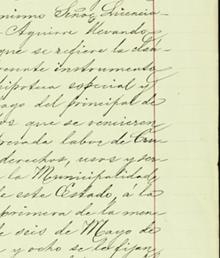 nismo Señor Licencia-
- Aguirre llevando
que se refiere la cláu-
presente instrumento
hipoteca especial y
pago del principal de
os que se vencieren
presada labor de Cru
derechos, usos y ser
la Municipalidad
de este Estado, á la
primera de la men
de seis de Mayo de
y ocho se fijan